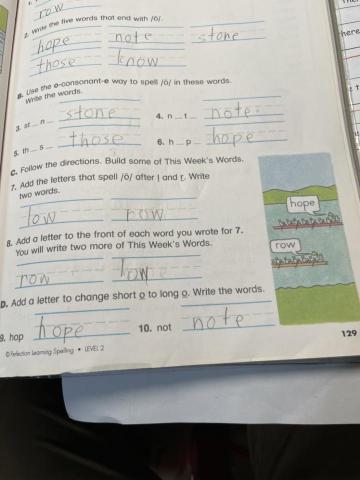 1.
row
2. Write the five words that end with /ō/.
hope note stone
those know
B. Use the o-consonant-e way to spell /ō/ in these words.
Write the words.
3. st _ n _ stone 4. n _ t _ note
5. th _ s _ those 6. h _ p _ hope
C. Follow the directions. Build some of This Week's Words.
7. Add the letters that spell /ō/ after l and r. Write
two words.
low row
hope
8. Add a letter to the front of each word you wrote for 7.
You will write two more of This Week's Words.
row
row low
D. Add a letter to change short o to long o. Write the words.
9. hop hope 10. not note
129
©Perfection Learning Spelling • LEVEL 2
here